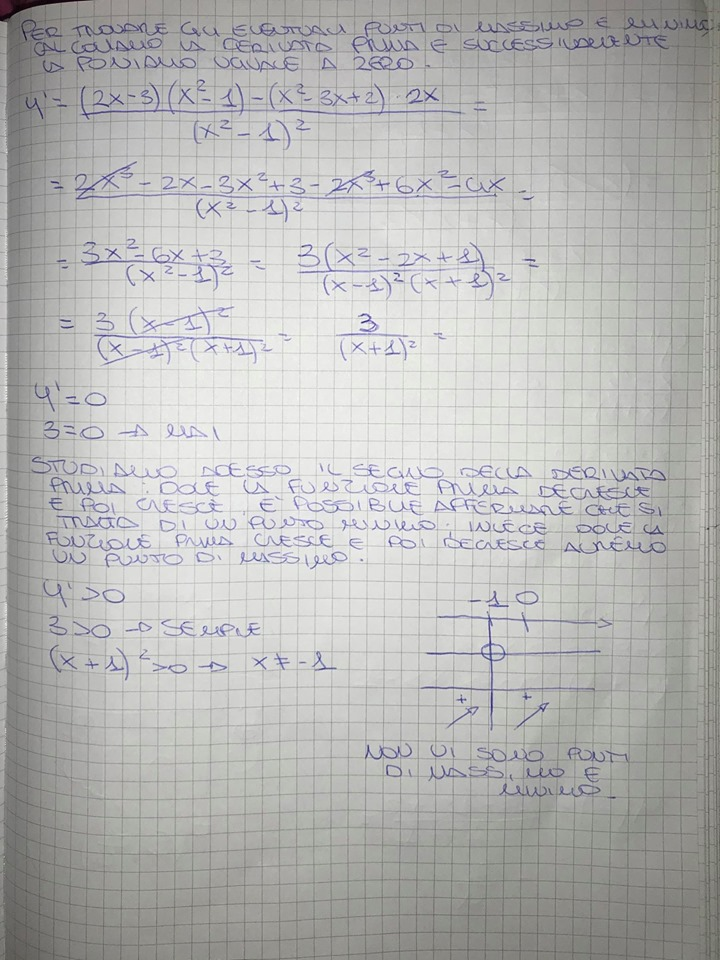 PER TROVARE GLI EVENTUALI PUNTI DI MASSIMO E MINIMO,
CALCOLIAMO LA DERIVATA PRIMA E SUCCESSIVAMENTE
LA PONIAMO UGUALE A ZERO.
y' = (2x-3)(x²-1)-(x²-3x+2)·2x / (x²-1)² =
= 2x³-2x-3x²+3-2x³+6x²-4x / (x²-1)² =
= 3x²-6x+3 / (x²-1)² = 3(x²-2x+1) / (x-1)²(x+1)² =
= 3(x-1)² / (x-1)²(x+1)² = 3 / (x+1)² =
y'=0
3=0 → MAI
STUDIAMO ADESSO IL SEGNO DELLA DERIVATA
PRIMA. DOVE LA FUNZIONE PRIMA DECRESCE
E POI CRESCE, È POSSIBILE AFFERMARE CHE SI
TRATTA DI UN PUNTO MINIMO; INVECE DOVE LA
FUNZIONE PRIMA CRESCE E POI DECRESCE AVREMO
UN PUNTO DI MASSIMO.
y'>0
3>0 → SEMPRE
(x+1)²>0 → x≠-1
-1 0
+ +
NON VI SONO PUNTI
DI MASSIMO E
MINIMO